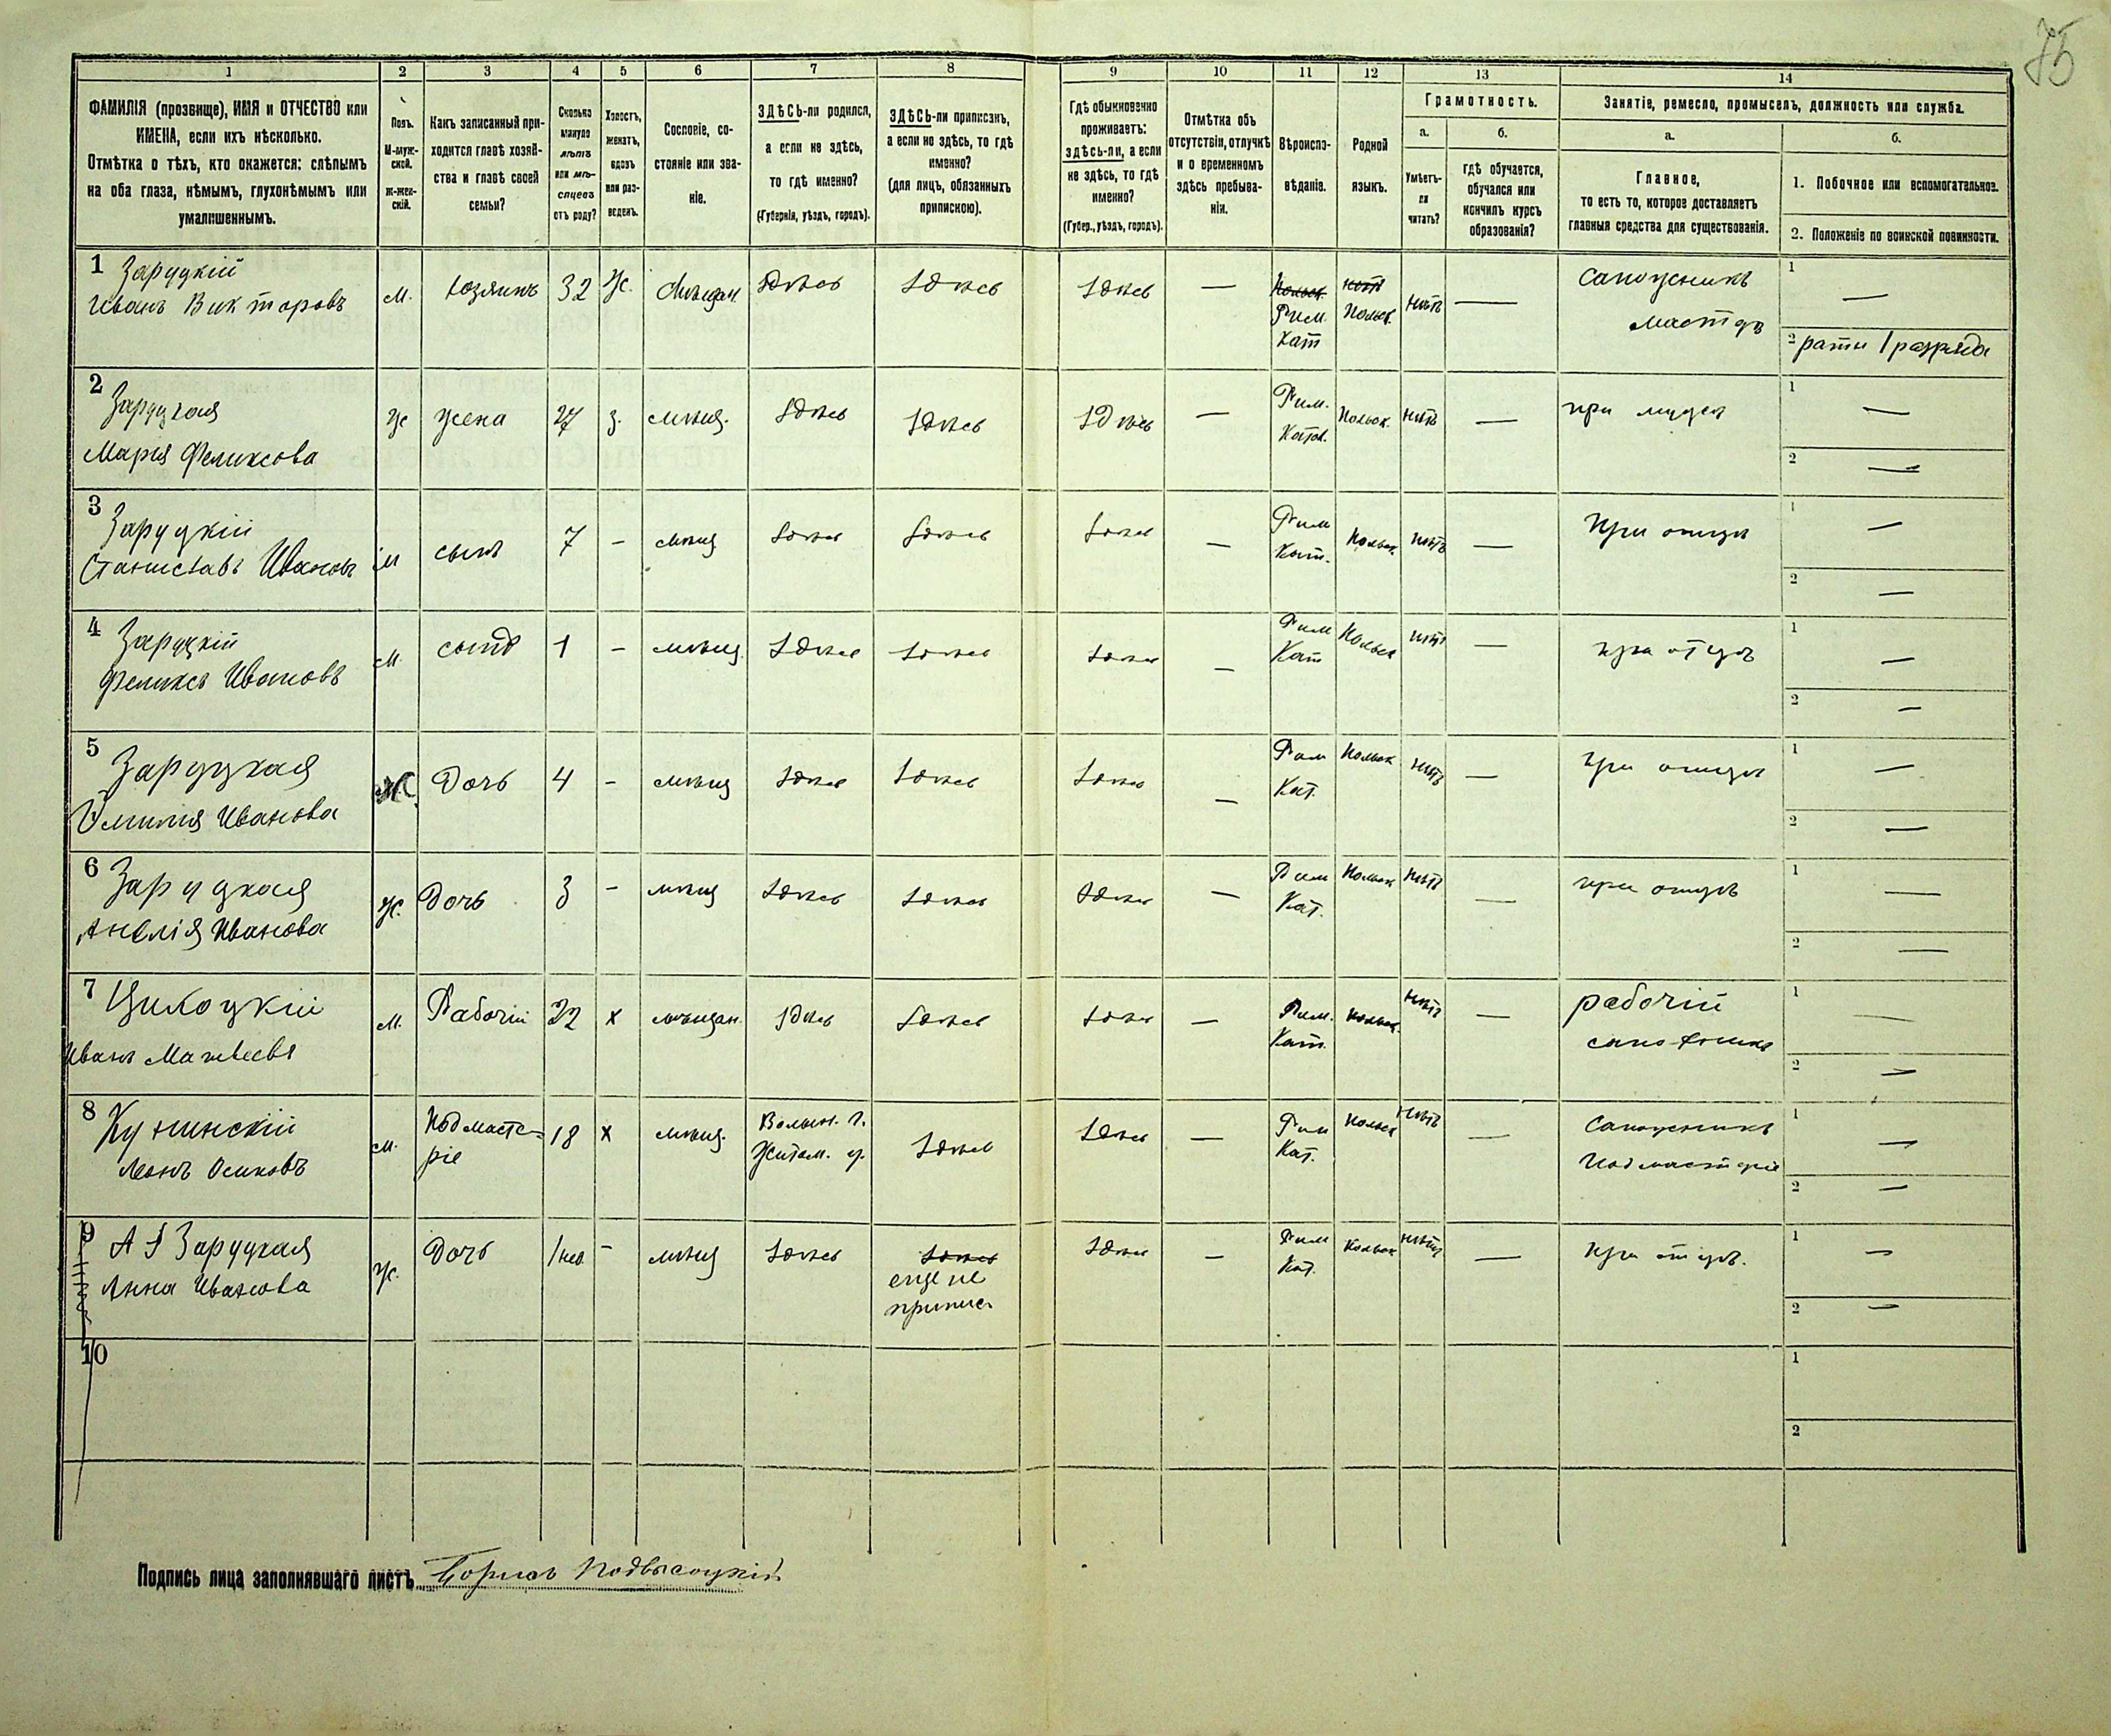 75
1 2 3 4 5 6 7 8 9 10 11 12 13 14
ФАМИЛІЯ (прозвище), ИМЯ и ОТЧЕСТВО или
ИМЕНА, если ихъ нѣсколько.
Отмѣтка о тѣхъ, кто окажется: слѣпымъ
на оба глаза, нѣмымъ, глухонѣмымъ или
умалишеннымъ.
Полъ.
М-муж-
ской.
Ж-жен-
скій.
Какъ записанный при-
ходится главѣ хозяй-
ства и главѣ своей
семьи?
Сколько
минуло
лѣтъ
или мѣ-
сяцевъ
отъ роду?
Холостъ,
женатъ,
вдовъ
или раз-
веденъ.
Сословіе, со-
стояніе или зва-
ніе.
ЗДѢСЬ-ли родился,
а если не здѣсь,
то гдѣ именно?
(Губернія, уѣздъ, городъ).
ЗДѢСЬ-ли приписанъ,
а если не здѣсь, то гдѣ
именно?
(для лицъ, обязанныхъ
припискою).
Гдѣ обыкновенно
проживаетъ:
здѣсь-ли, а если
не здѣсь, то гдѣ
именно?
(Губер., уѣздъ, городъ).
Отмѣтка объ
отсутствіи, отлучкѣ
и о временномъ
здѣсь пребыва-
ніи.
Вѣроиспо-
вѣданіе.
Родной
языкъ.
Грамотность.
а.
Умѣетъ-
ли
читать?
б.
гдѣ обучается,
обучался или
кончилъ курсъ
образованія?
Занятіе, ремесло, промыселъ, должность или служба.
а.
Главное,
то есть то, которое доставляетъ
главныя средства для существованія.
б.
1. Побочное или вспомогательное.
2. Положеніе по воинской повинности.
1 Заруцкій
Иванъ Викторовъ
м. хозяинъ 32 Ж. Мѣщан. Здѣсь Здѣсь Здѣсь —
Польск.
Рим.
Кат
нѣтъ
Польск.
нѣтъ —
сапожникъ
мастеръ
1 —
2 рати 1 разряда
2 Заруцкая
Марія Феликсова
ж жена 27 з. мѣщ. Здѣсь Здѣсь Здѣсь —
Рим.
Катол.
Польск. нѣтъ —
при мужѣ
1 —
2 —
3 Заруцкій
Станиславъ Ивановъ
м сынъ 7 – мѣщ Здѣсь Здѣсь Здѣсь —
Рим
Кат.
Польск. нѣтъ —
При отцѣ
1 —
2 —
4 Заруцкій
Феликсъ Ивановъ
м. сынъ 1 – мѣщ. Здѣсь Здѣсь Здѣсь —
Рим
Кат
Польск нѣтъ —
при отцѣ
1 —
2 —
5 Заруцкая
Эмилія Иванова
Ж. Дочь 4 – мѣщ Здѣсь Здѣсь Здѣсь —
Рим
Кат.
Польск нѣтъ —
при отцѣ
1 —
2 —
6 Заруцкая
Анелія Иванова
Ж. Дочь 3 – мѣщ Здѣсь Здѣсь Здѣсь —
Рим
Кат.
Польск нѣтъ —
при отцѣ
1 —
2 —
7
Иванъ Матвеевъ
м. Рабочій 22 х мѣщан. Здѣсь Здѣсь Здѣсь —
Рим.
Кат.
польск. нѣтъ —
рабочій
1 —
2 —
8
Леонъ Осиповъ
м. Подмасте-
ріе
18 х мѣщ.
Волын. г.
Житом. у.
Здѣсь Здѣсь —
Рим
Кат.
Польск нѣтъ —
Сапожникъ
Подмастеріе
1 —
2 —
9 Заруцкая
Анна Иванова
Ж. Дочь 1 нед. – мѣщ Здѣсь
Здѣсь
еще не
припис
Здѣсь —
Рим
Кат.
Польск нѣтъ —
При отцѣ.
1 —
2 —
10
1
2
Подпись лица заполнявшаго листъ Борисъ Подвысоцкій